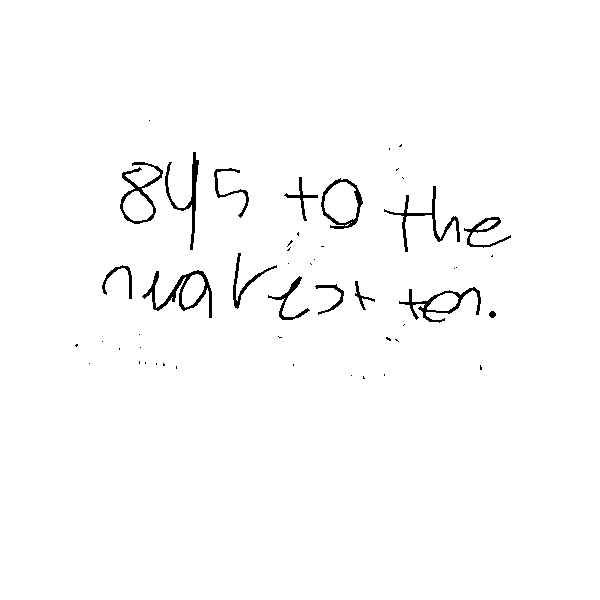 845 to the
nearest ten.